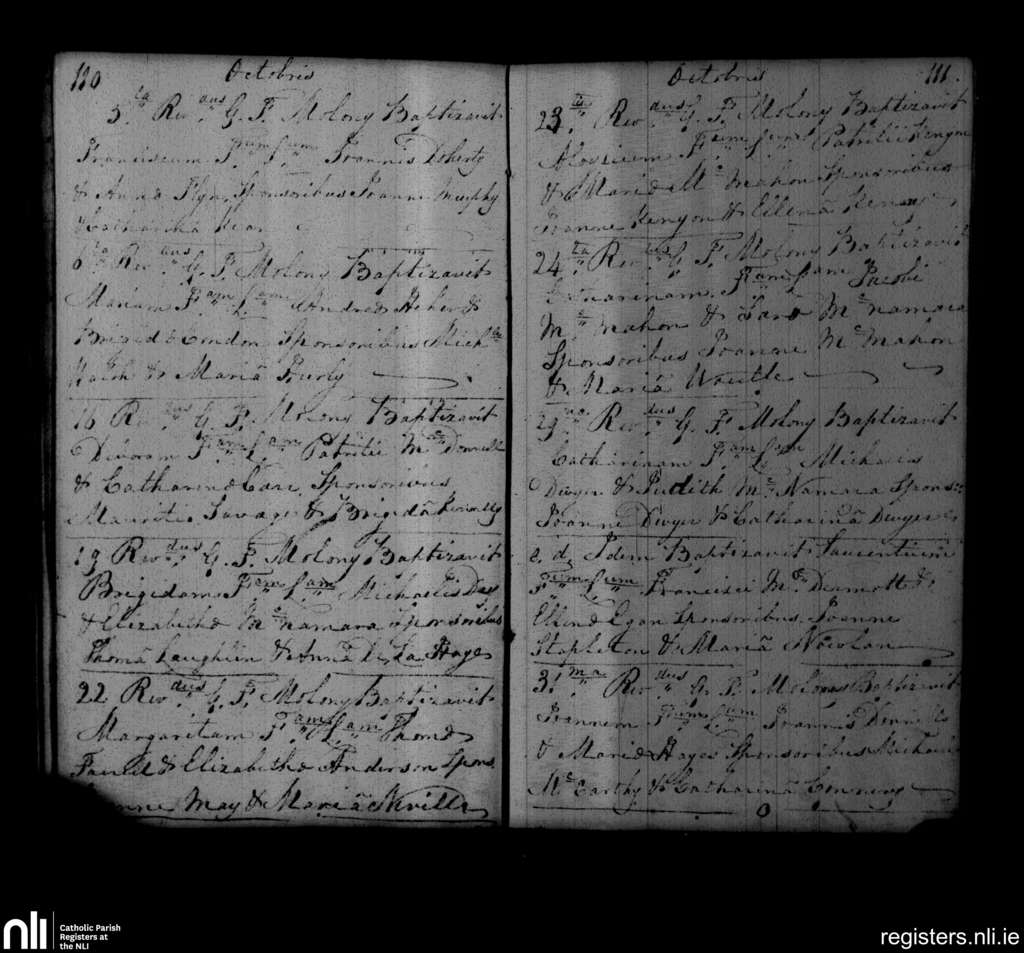 110 Octobris
5.ta Rev.dus G. F. Molony Baptizavit
Franciscum F.ium L.um Joannis Doherty
& Anna Flyn, Sponsoribus Joanne Murphy
& Catharina
6.ta Rev.dus G. F. Molony Baptizavit
Mariam F.am L.am Andrea &
Brigida Condon Sponsoribus Mich
Walsh & Mariâ
16 Rev.dus G. F. Molony Baptizavit
F.am L.am Patritii Mc Donnell
& Catharina Sponsoribus
Mauritio Savage & Brigidâ
19 Rev.dus G. F. Molony Baptizavit
Brigidam F.am L.am Michaelis
& Elizabetha Mc namara Sponsoribus
Thomâ Laughlin & Annâ De La Haye
22 Rev.dus G. F. Molony Baptizavit
Margaritam F.am L.am Thoma
& Elizabetha Anderson Spons
May & Mariâ Nevills
Octobris 111.
23.tia Rev.dus G. F. Molony Baptizavit
Aloysium F.ium L.um Patritii Kenyon
& Maria Mc mahon Sponsoribus
Joanne Kenyon & Eilenâ
24.ta Rev.dus G. F. Molony Baptizavit
Catharinam F.am L.am Jacobi
Mc mahon & Sara Mc namara
Sponsoribus Joanne Mc mahon
& Mariâ
29.na Rev.dus G. F. Molony Baptizavit
Catharinam F.am L.am Michaelis
Dwyer & Judith Mc Namara Spons
Joanne Dwyer & Catharinâ Dwyer
e. d. Idem Baptizavit Laurentium
F.ium L.um Francisci Mc Dermott &
Ellena Egan Sponsoribus Joanne
Stapleton & Mariâ Nowlan
31.ma Rev.dus G. F. Molony Baptizavit
Joannem F.ium L.um Joannis
& Maria Hayes Sponsoribus Michaele
Mc Carthy & Catharinâ
nli Catholic Parish
Registers at
the NLI
registers.nli.ie